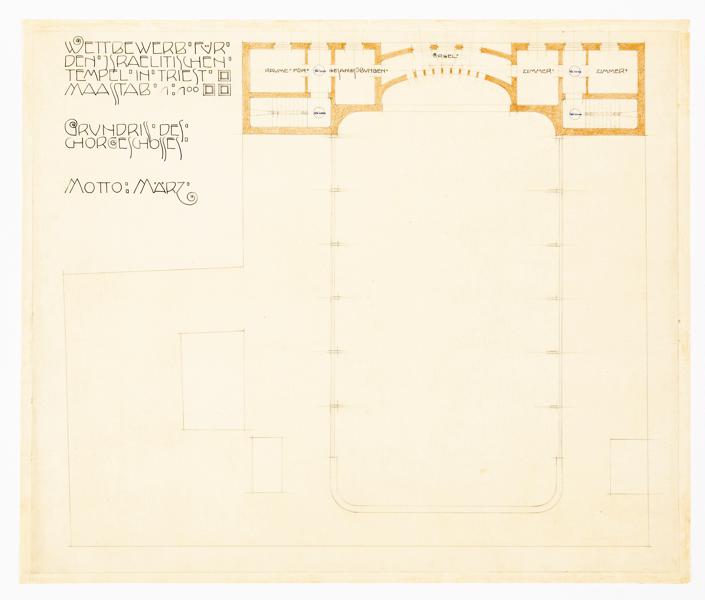 WETTBEWERB FVR
DEN ISRAELITISCHEN
TEMPEL IN TRIEST
MAASSTAB 1:100
GRVNDRISS DES
CHORGESCHOSSES
MOTTO: MÄRZ
ORGEL
RÄUME FÜR GESANGSÜBUNGEN
ZIMMER
ZIMMER